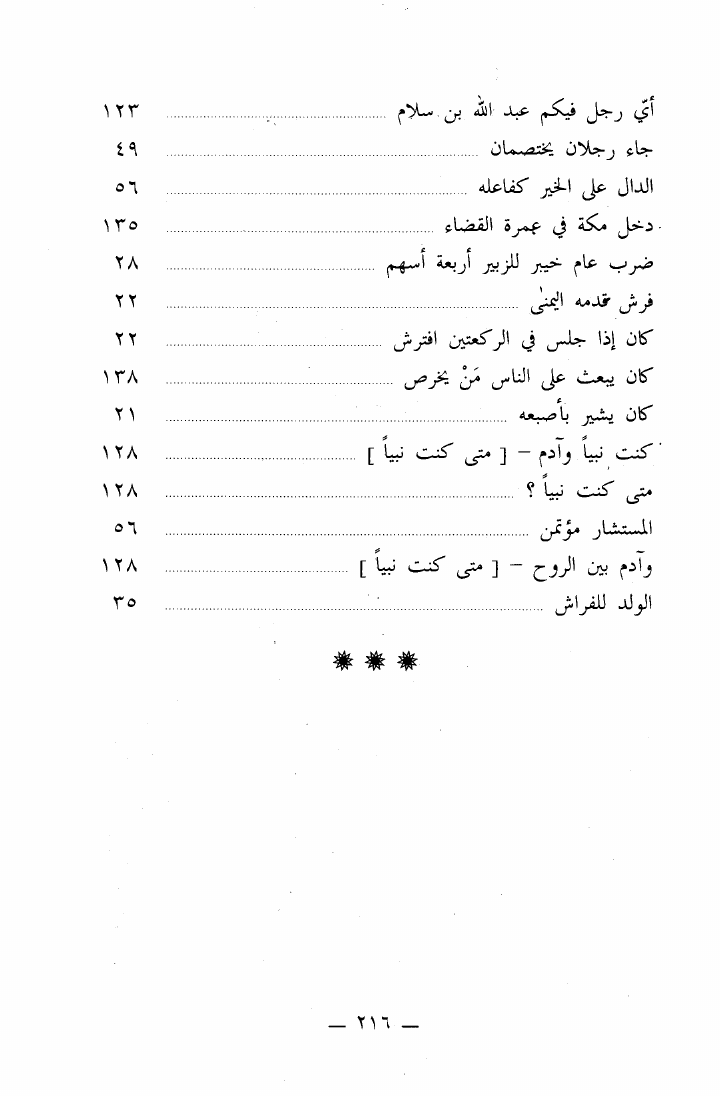 أيّ رجل فيكم عبد الله بن سلام ........ ١٢٣
جاء رجلان يختصمان ........ ٤٩
الدال على الخير كفاعله ........ ٥٦
دخل مكة في عمرة القضاء ........ ١٣٥
ضرب عام خيبر للزبير أربعة أسهم ........ ٢٨
فرش قدمه اليمنٰى ........ ٢٢
كان إذا جلس في الركعتين افترش ........ ٢٢
كان يبعث على الناس مَنْ يخرص ........ ١٣٨
كان يشير بأصبعه ........ ٢١
كنت نبياً وآدم – [ متى كنت نبياً ] ........ ١٢٨
متى كنت نبياً ؟ ........ ١٢٨
المستشار مؤتمن ........ ٥٦
وآدم بين الروح – [ متى كنت نبياً ] ........ ١٢٨
الولد للفراش ........ ٣٥
— ٢١٦ —